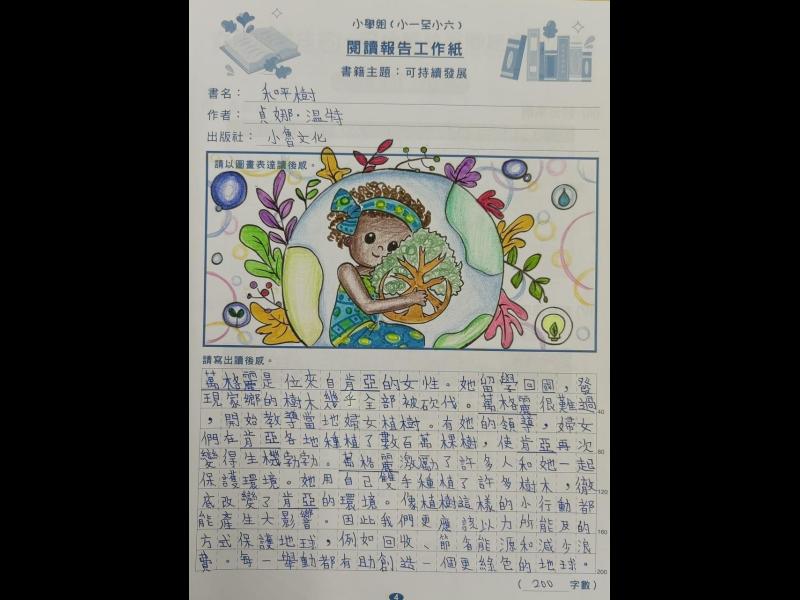 小學組(小一至小六)
閱讀報告工作紙
書籍主題:可持續發展
書名: 和平樹
作者: 貞娜·温特
出版社: 小魯文化
請以圖畫表達讀後感。
請寫出讀後感。
萬格麗是一位來自肯亞的女性。她留學回國,發
現家鄉的樹木幾乎全部被砍伐。萬格麗很難過
,開始教導當地婦女植樹。有她的領導,婦女
40
們在肯亞各地種植了數百萬棵樹,使肯亞再次
變得生機勃勃。萬格麗激勵了許多人和她一起
80
保護環境。她用自己雙手種植了許多樹木,徹
底改變了肯亞的環境。像植樹這樣的小行動都
120
能產生大影響。因此我們更應該以力所能及的
方式保護地球,例如回收、節省能源和減少浪
160
費。每一舉動都有助創造一個更綠色的地球。
200
( 200 字數)
4